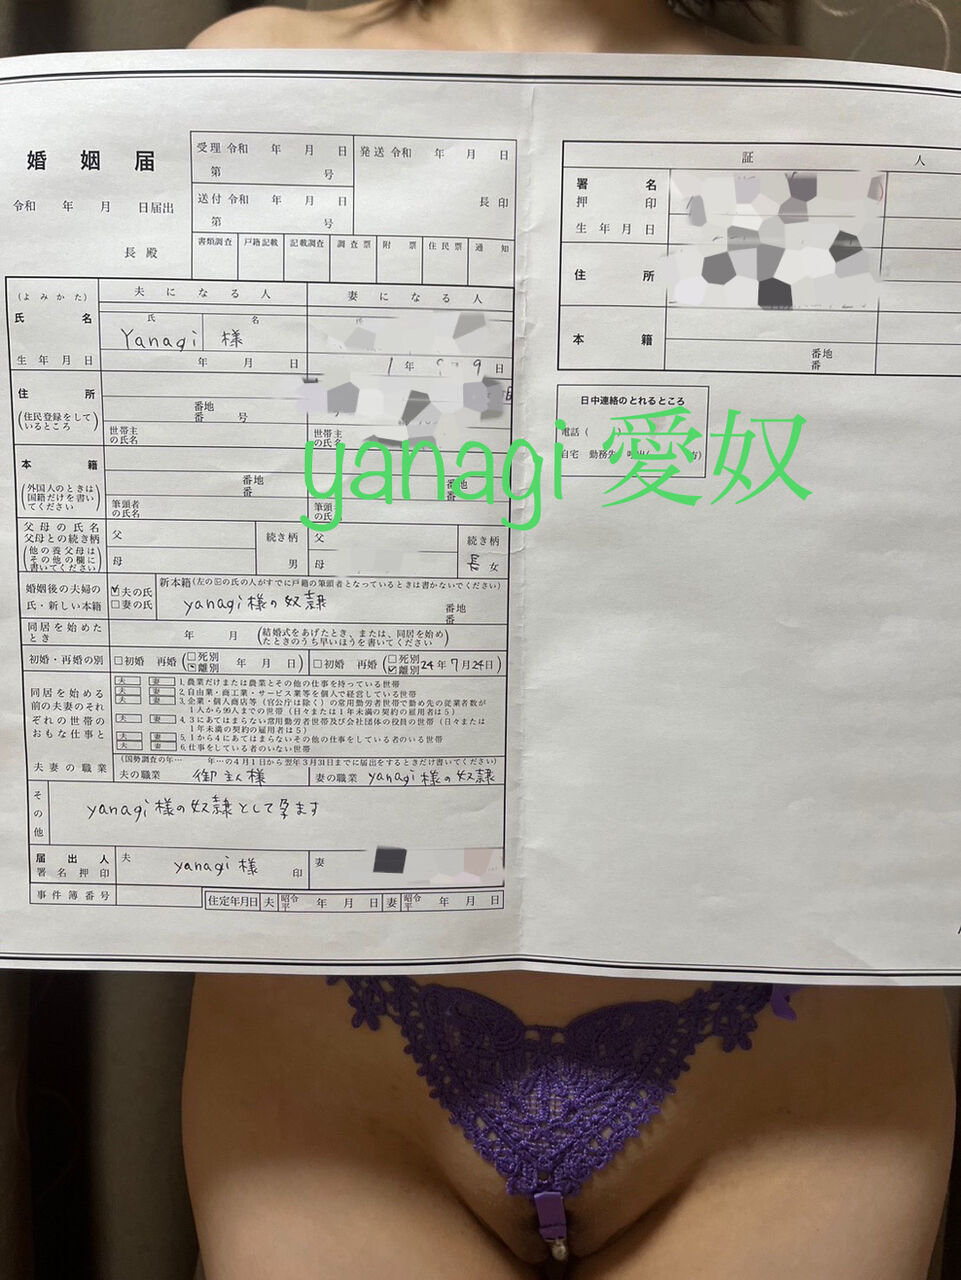 婚姻届
令和 年 月 日届出
長 殿
受理 令和 年 月 日
第 号
送付 令和 年 月 日
第 号
発送 令和 年 月 日
長 印
書類調査 戸籍記載 記載調査 調査票 附票 住民票 通知
(よみかた)
夫になる人 妻になる人
氏名
氏 名
Yanagi 様
生年月日
年 月 日
年 9日
住所
(住民登録をしているところ)
番地
番 号
世帯主の氏名
世帯主の氏名
本籍
(外国人のときは国籍だけを書いてください)
番地
番
番地
番
筆頭者の氏名
筆頭
の氏名
父母の氏名
父母との続き柄
(他の養父母はその他の欄に書いてください)
父
母
続き柄
男
父
母
続き柄
長 女
婚姻後の夫婦の氏・新しい本籍
☑夫の氏
□妻の氏
新本籍(左の☑の氏の人がすでに戸籍の筆頭者となっているときは書かないでください)
yanagi様の奴隷
番地
番
同居を始めたとき
年 月
(結婚式をあげたとき、または、同居を始めたときのうち早いほうを書いてください)
初婚・再婚の別
□初婚 再婚(□死別 □離別 年 月 日)
□初婚 再婚(□死別 ☑離別 24年7月24日)
同居を始める前の夫妻のそれぞれの世帯のおもな仕事と
夫 妻 1.農業だけまたは農業とその他の仕事を持っている世帯
夫 妻 2.自由業・商工業・サービス業等を個人で経営している世帯
夫 妻 3.企業・個人商店等(官公庁は除く)の常用勤労者世帯で勤め先の従業者数が1人から99人までの世帯(日々または1年未満の契約の雇用者は5)
夫 妻 4.3にあてはまらない常用勤労者世帯及び会社団体の役員の世帯(日々または1年未満の契約の雇用者は5)
夫 妻 5.1から4にあてはまらないその他の仕事をしている者のいる世帯
夫 妻 6.仕事をしている者のいない世帯
夫妻の職業
(国勢調査の年… 年…の4月1日から翌年3月31日までに届出をするときだけ書いてください)
夫の職業 御主人様
妻の職業 yanagi様の奴隷
その他
yanagi様の奴隷として孕ます
届出人
署名押印
夫 yanagi様 印
妻
事件簿番号
住定年月日 夫 昭令平 年 月 日 妻 昭令平 年 月 日
証人
署名
押印
生年月日
住所
本籍
番地
番
日中連絡のとれるところ
電話( )
自宅 勤務先 呼出( 方)
yanagi 愛奴